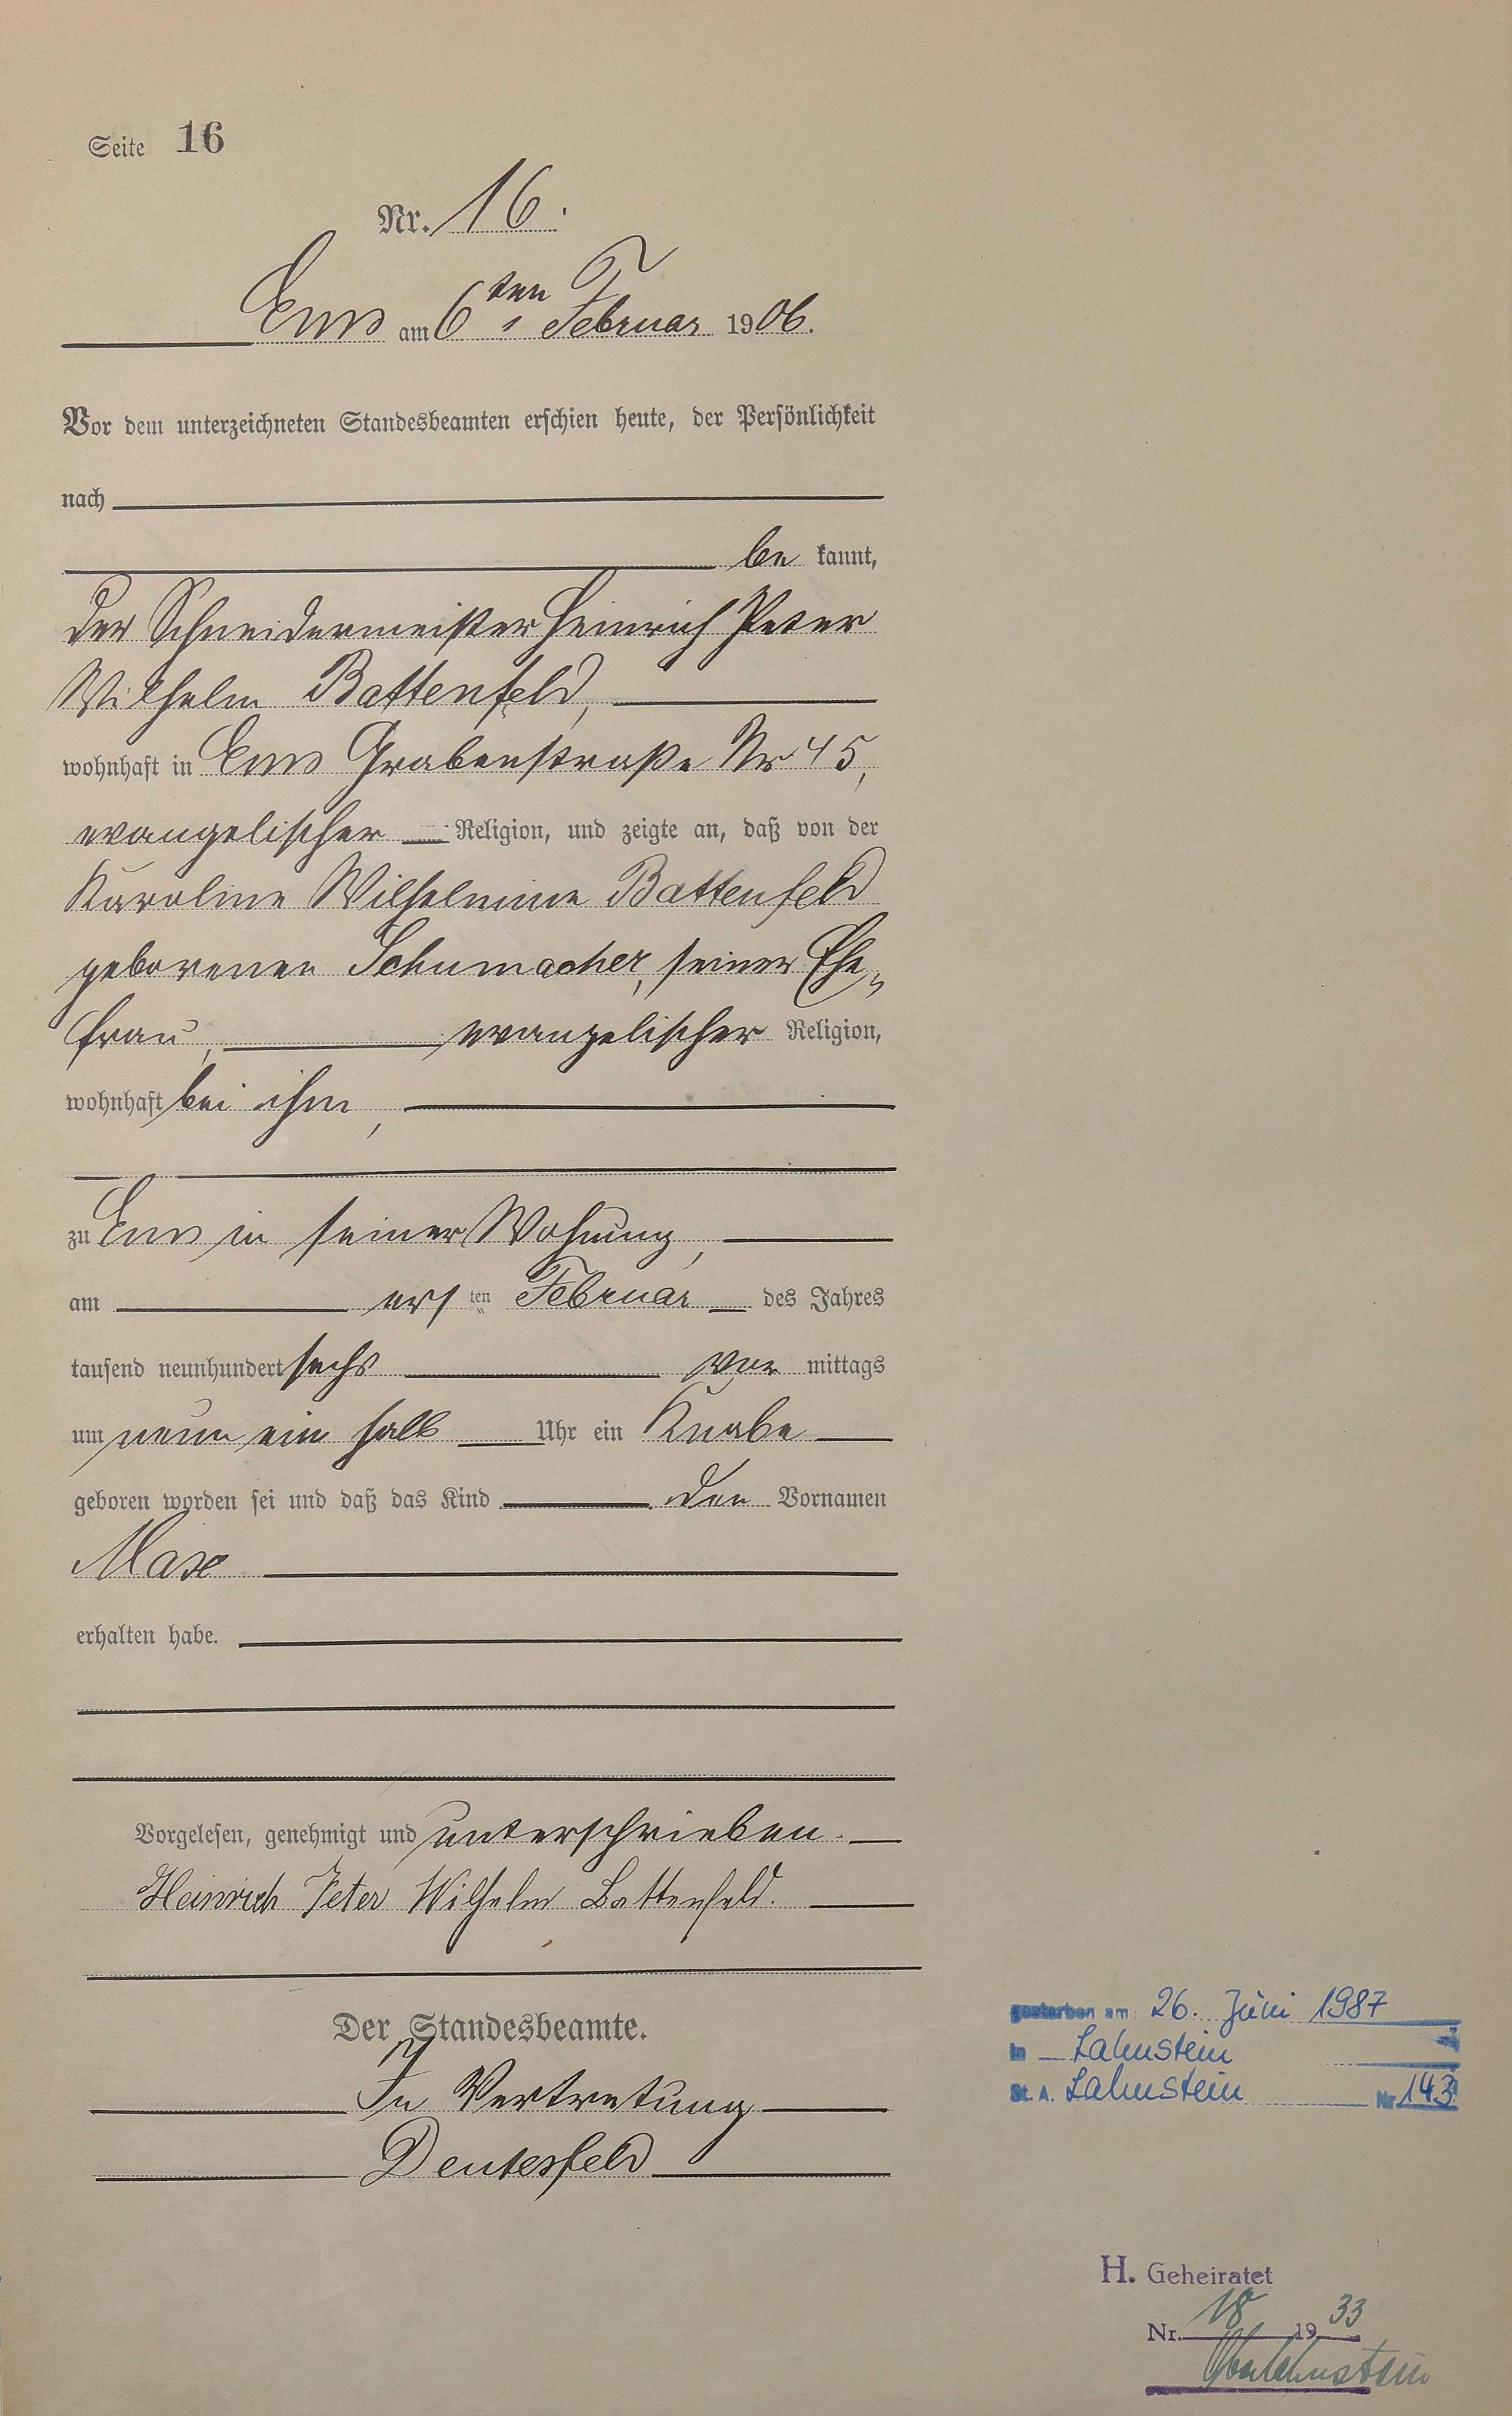 Seite 16
Nr. 16.
Ems am 6ten Februar 1906.
Vor dem unterzeichneten Standesbeamten erschien heute, der Persönlichkeit
nach
be kannt,
der Schneidermeister Heinrich Peter
Wilhelm Battenfeld,
wohnhaft in Ems Grabenstraße Nr 45,
evangelischer Religion, und zeigte an, daß von der
Karoline Wilhelmine Battenfeld
geborenen Schumacher, seiner Ehe„
frau, evangelischer Religion,
wohnhaft bei ihm,
zu Ems in seiner Wohnung,
am ersten Februar des Jahres
tausend neunhundert sechs vor mittags
um neun ein halb Uhr ein Knabe
geboren worden sei und daß das Kind den Vornamen
Max
erhalten habe.
Vorgelesen, genehmigt und unterschrieben.
Heinrich Peter Wilhelm Battenfeld.
Der Standesbeamte.
In Vertretung
Deutesfeld
gestorben am 26. Juni 1987
in Lahnstein
St. A. Lahnstein Nr 143
H. Geheiratet
Nr. 18 1933
Oberlahnstein